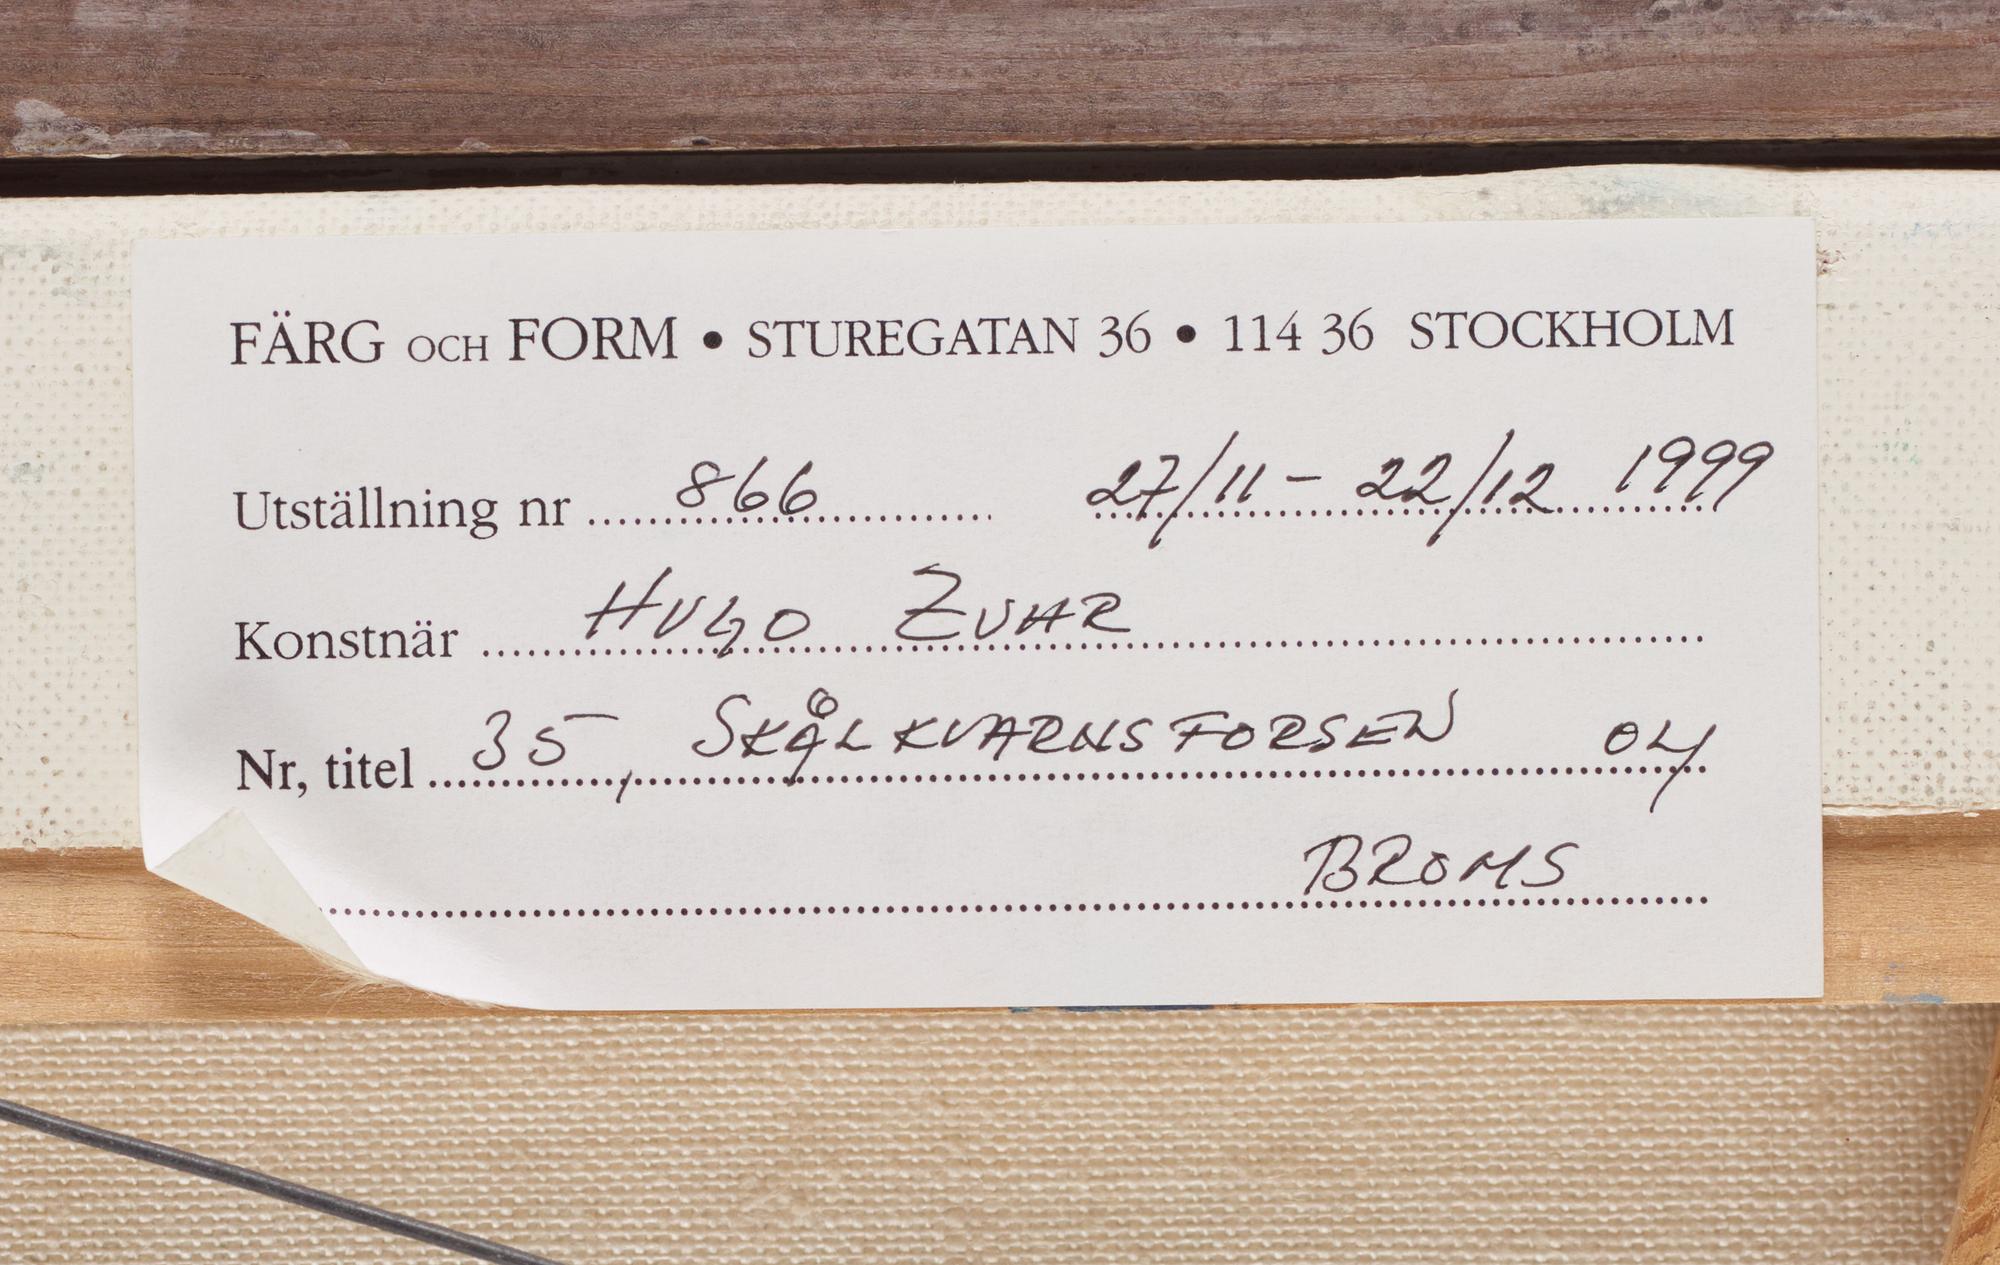 FÄRG OCH FORM • STUREGATAN 36 • 114 36 STOCKHOLM
Utställning nr 866 27/11 – 22/12 1999
Konstnär HUGO ZUHR
Nr, titel 35, SKÅLKVARNSFORSEN 04
BROMS